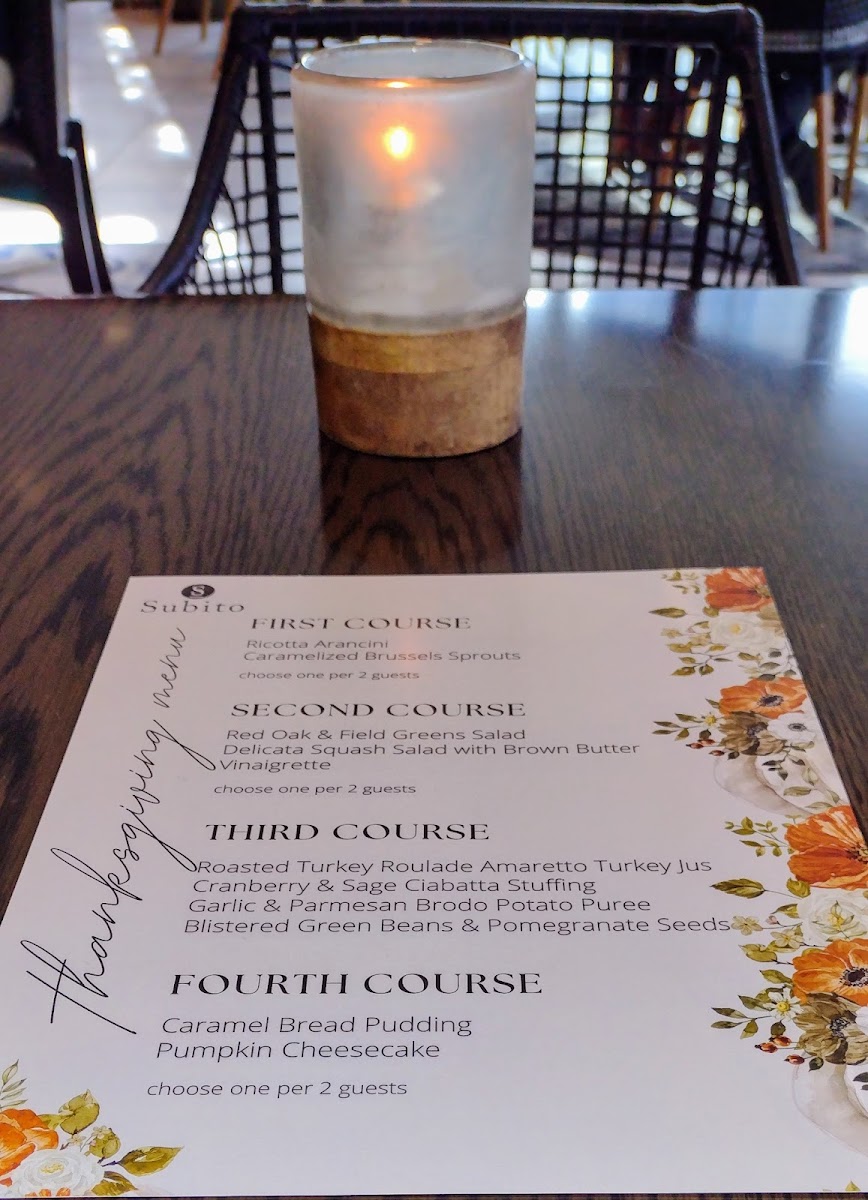 S
Subito
thanksgiving menu
FIRST COURSE
Ricotta Arancini
Caramelized Brussels Sprouts
choose one per 2 guests
SECOND COURSE
Red Oak & Field Greens Salad
Delicata Squash Salad with Brown Butter
Vinaigrette
choose one per 2 guests
THIRD COURSE
Roasted Turkey Roulade Amaretto Turkey Jus
Cranberry & Sage Ciabatta Stuffing
Garlic & Parmesan Brodo Potato Puree
Blistered Green Beans & Pomegranate Seeds
FOURTH COURSE
Caramel Bread Pudding
Pumpkin Cheesecake
choose one per 2 guests